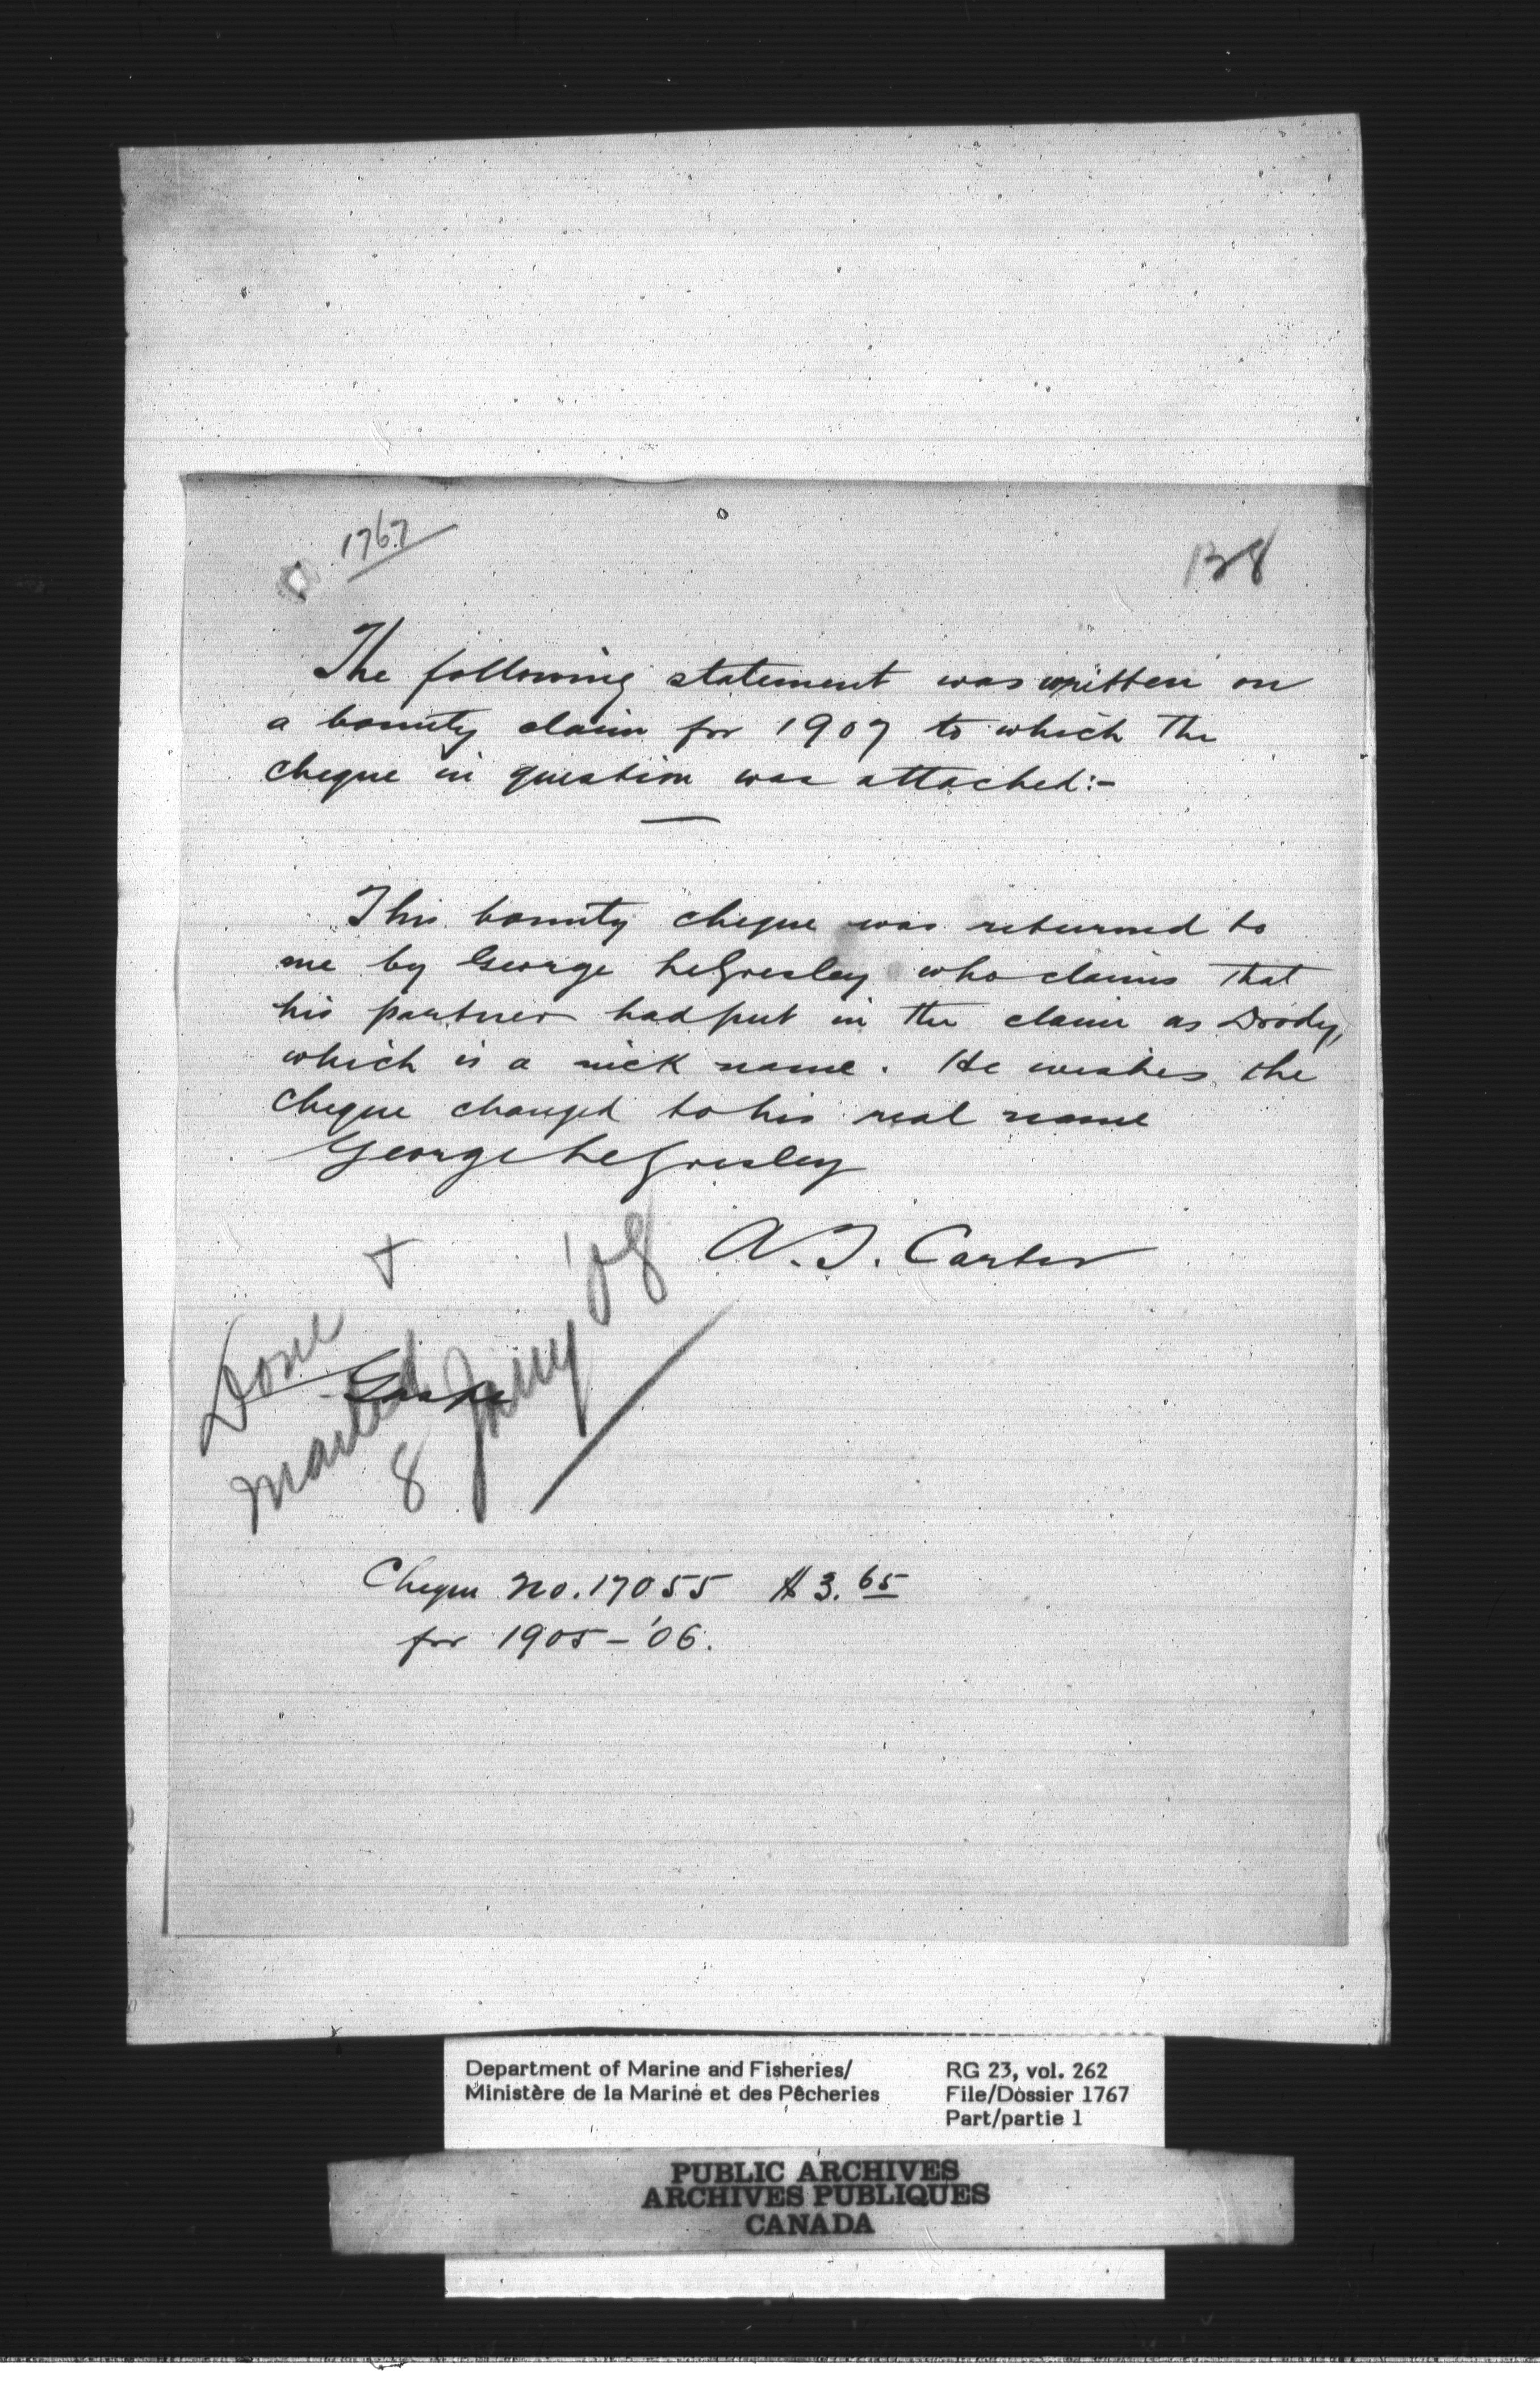 1767
138
The following statement was written on
a bounty claim for 1907 to which the
cheque in question was attached:-
This bounty cheque was returned to
me by George LeGresley who claims that
his partner had put in the claim as Drody,
which is a nick name. He wishes the
cheque changed to his real name
George LeGresley
A. T. Carter
Done +
mailed
8 Jany '08
Gaspe
Cheque No. 17055 $3.65
for 1905-'06.
Department of Marine and Fisheries/
Ministère de la Marine et des Pêcheries
RG 23, vol. 262
File/Dossier 1767
Part/partie 1
PUBLIC ARCHIVES
ARCHIVES PUBLIQUES
CANADA